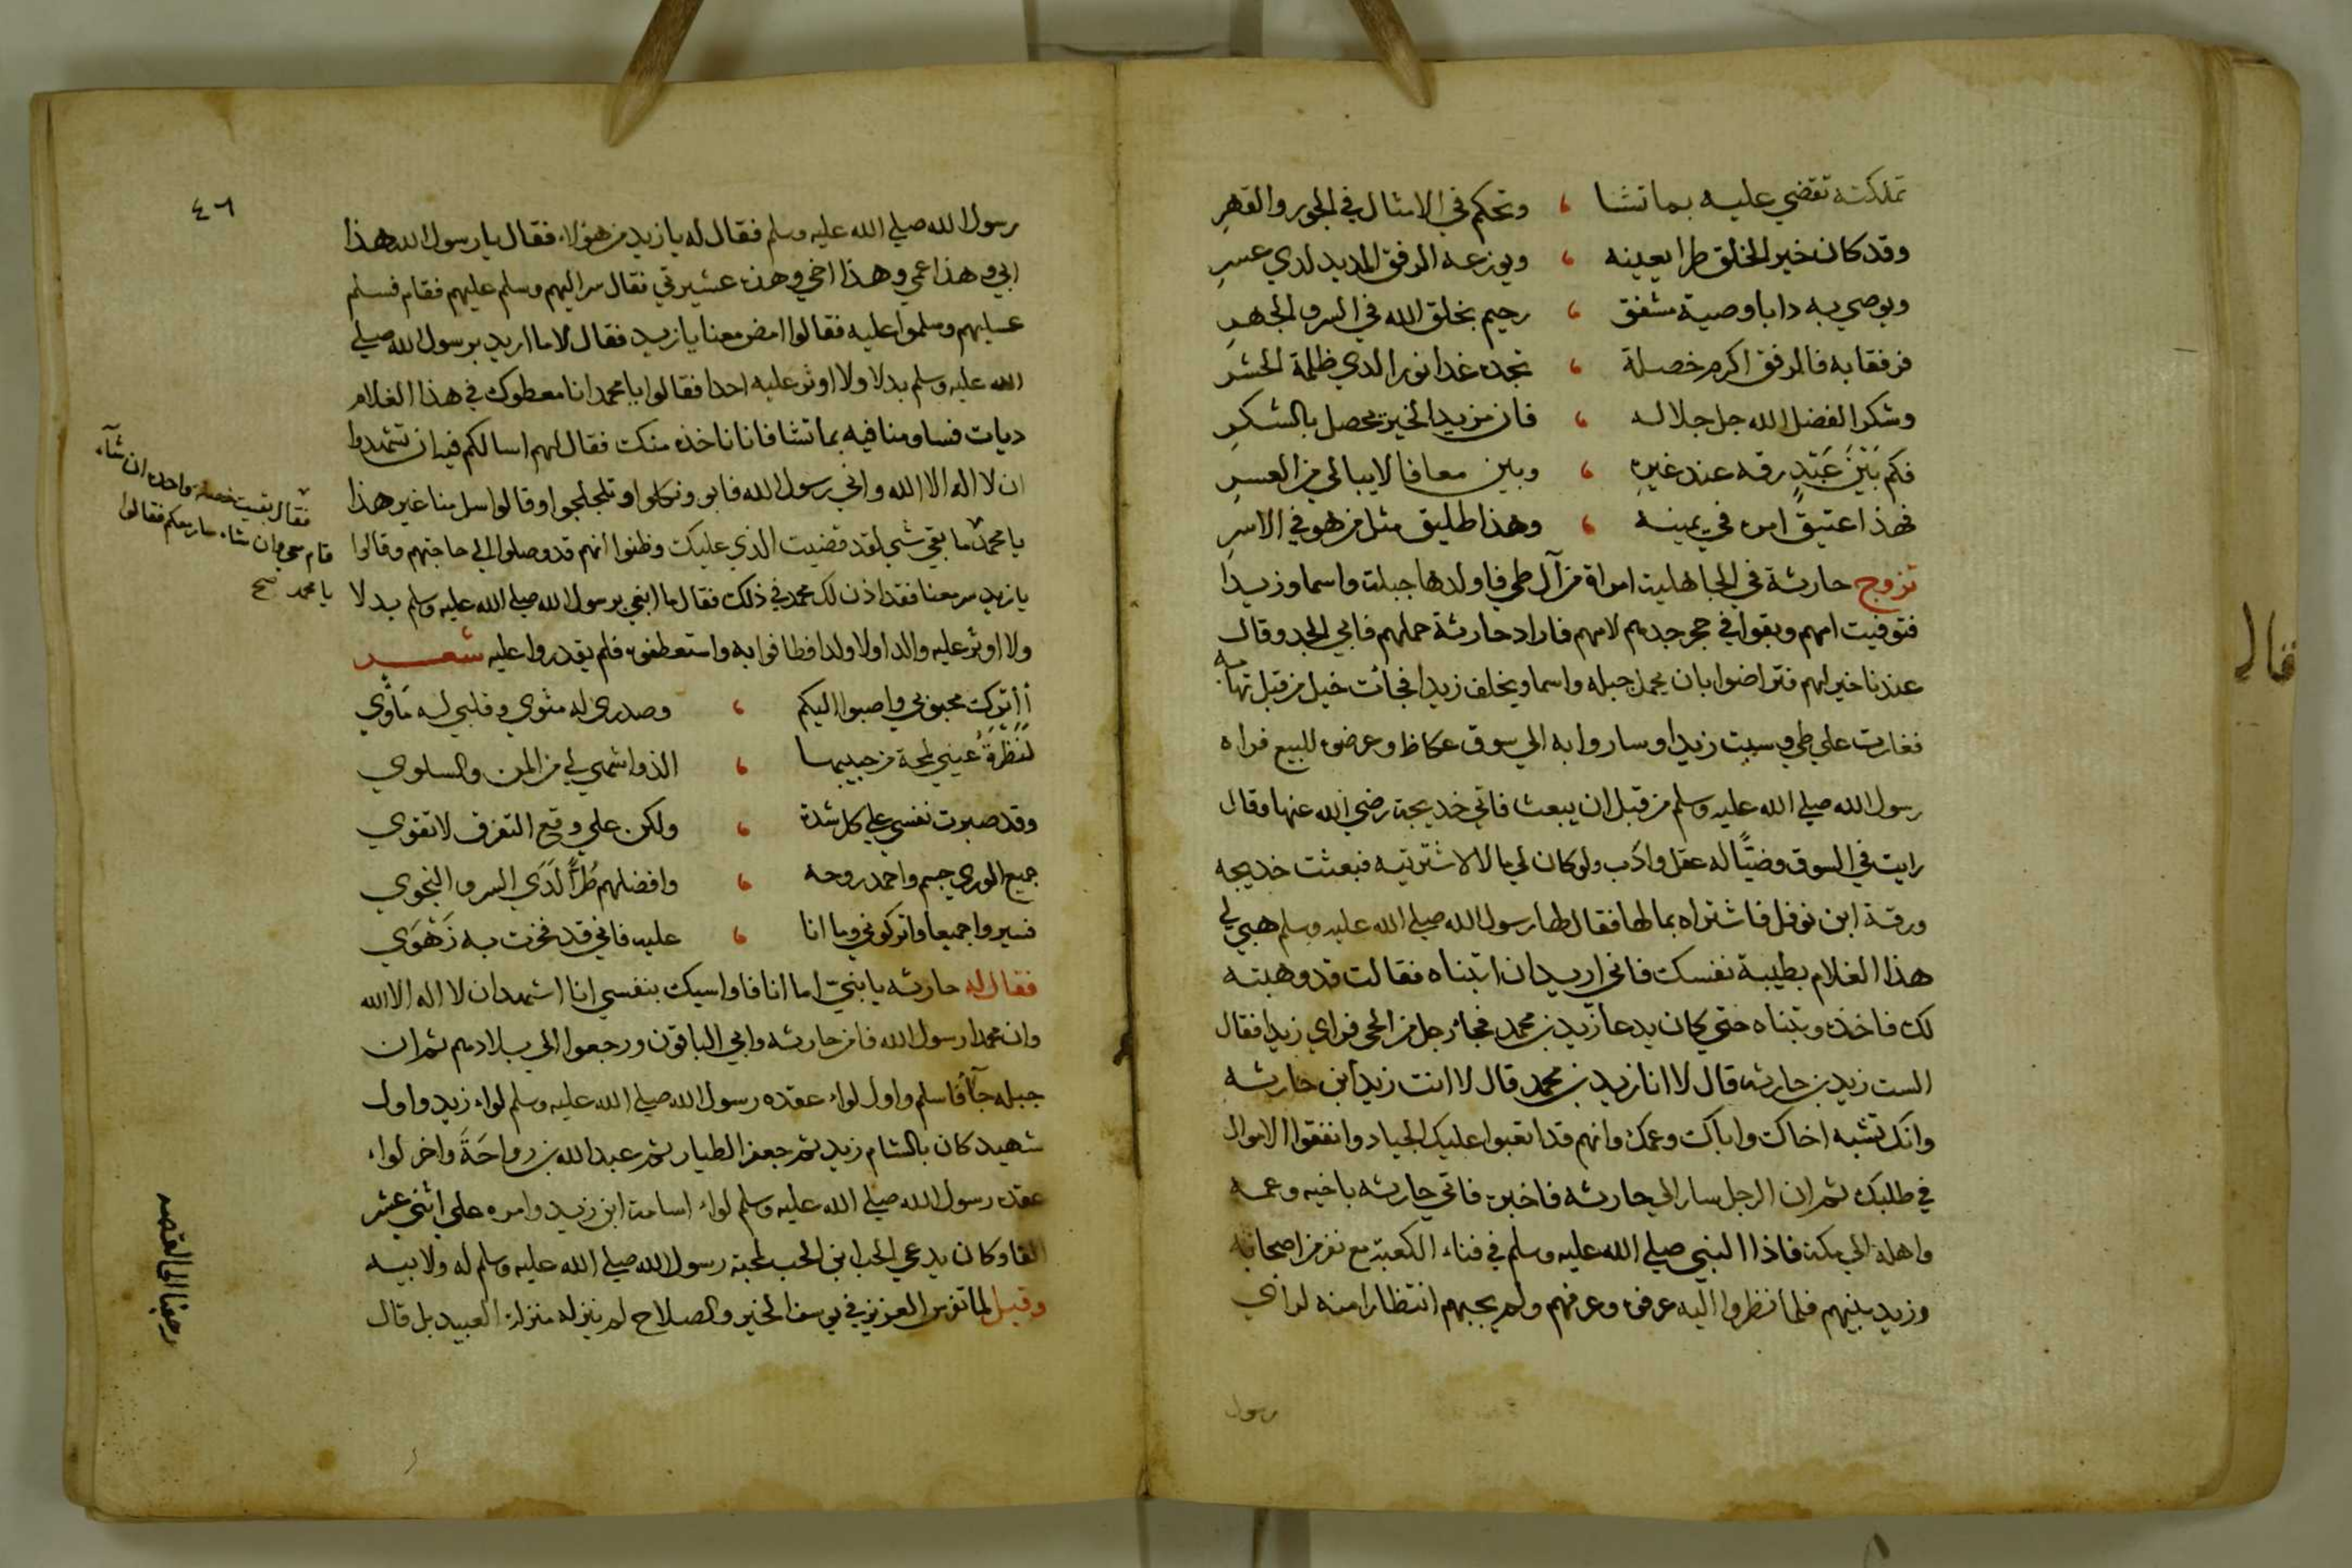 تملكته تقضي عليه بما تشا ، وتحكم في الامثال في الجور والقهرِ
وقد كان خير الخلق طرا يعينه ، ويوزعه الرفق المديد لدي عسرِ
ويوصي به دابا وصية مشفق ، رحيم بخلق الله في السر والجهرِ
فرفقا به فالرفق اكرم خصلة ، تجده غدا نورا لدي ظلمة الحشرِ
وشكرا لفضل الله جل جلاله ، فان مزيد الخير يحصل بالشكرِ
فكم بَيْنَ عَبْدٍ رقه عند غيرهِ ، وبين معافا لا يبالي من العسرِ
فهذا عتيق امره في يمينه ، وهذا طليق مثل من هو في الاسرِ
تزوج حارثة في الجاهلية امراة من آل طي فاولدها جبلة واسما وزيدا
فتوفيت امهم وبقوا في حجر جدهم لامهم فاراد حارثة حملهم فابي الجد وقال
عندنا خير لهم فتراضوا بان يحمل جبله واسما ويخلف زيدا فجأت خيل من قبل تهامه
فغارت علي طي وسبت زيدا وساروا به الي سوق عكاظ وعرضوه للبيع فراه
رسول الله صلي الله عليه وسلم من قبل ان يبعث فاتي خديجة رضي الله عنها وقال
رايت في السوق فتيًا له عقل وادَب ولو كان لي مالا لاشتريته فبعثت خديجه
ورقة ابن نوفل فاشتراه بمالها فقال لها رسول الله صلي الله عليه وسلم هبي لي
هذا الغلام بطيبة نفسك فاني اريد ان اتبناه فقالت قد وهبته
لك فاخذه وتبناه حتي كان يدعا زيد بن محمد فجاء رجل من الحي فراي زيدا فقال
الست زيد بن حارثه قال لا انا زيد بن محمد قال لا انت زيد ابن حارثه
وانك تشبه اخاك واباك وعمك وانهم قد اتعبوا عليك الجياد وانفقوا الاموال
في طلبك ثم ان الرجل سار الي حارثه فاخبره فاتي حارثه باخيه وعمه
واهله الي مكة فاذا النبي صلي الله عليه وسلم في فناء الكعبة مع نفر من اصحابه
وزيد بينهم فلما نظروا اليه عرفوه وعرفهم ولم يجبهم انتظارا منه لراي
رسول
٤٦
رسول الله صلي الله عليه وسلم فقال له يا زيد من هؤلاء فقال يا رسول الله هذا
ابي وهذا عمي وهذا اخي وهذه عشيرتي فقال سر اليهم وسلم عليهم فقام فسلم
عليهم وسلموا عليه فقالوا امض معنا يا زيد فقال لا ما اريد برسول الله صلي
الله عليه وسلم بدلا ولا اوثر عليه احدا فقالوا يا محمد انا معطوك في هذا الغلام
ديات فساومنا فيه بما تشا فانا ناخذه منك فقال لهم اسالكم فيه ان تشهدوا
ان لا اله الا الله واني رسول الله فابو ونكلوا وتلجلجوا وقالوا سل منا غير هذا
يا محمد ما بقي شي لقد قضيت الذي عليك وظنوا انهم قد وصلوا الي حاجتهم وقالوا
يا زيد سر معنا فقد اذن لك محمد في ذلك فقال ما ابغي برسول الله صلي الله عليه وسلم بدلا
ولا اوثر عليه والدا ولا ولدا فطافوا به واستعطفوه فلم يقدروا عليه شعر
أأترك محبوبي واصبوا اليكم ، وصدري له مثوي وقلبي له مَأوي
لَنَظْرَةُ عيني لمحة من حبيبها ، الذ واشهي لي من المن والسلوي
وقد صبرت نفسي علي كل شدة ، ولكن علي وقع التفرق لا تقوي
جميع الوري جسم واحمد روحه ، وافضلهم طُرًّا لَدَي السر والنجوي
فسيروا جميعا واتركوني وما انا ، عليه فاني قد فزت به زَهْوي
فقال له حارثه يا بنيّ اما انا فاواسيك بنفسي انا اشهد ان لا اله الا الله
وان محمدا رسول الله فامن حارثه وابي الباقون ورجعوا الي بلادهم ثم ان
جبله جآ فاسلم واول لواء عقده رسول الله صلي الله عليه وسلم لواء زيد واول
شهيد كان بالشام زيد ثم جعفر الطيار ثم عبد الله بن رواحَةَ واخر لواء
عقده رسول الله صلي الله عليه وسلم لواء اسامة ابن زيد وامره علي اثني عشر
القا وكان يدعي الحب ابن الحب لمحبة رسول الله صلي الله عليه وسلم له ولابيه
وقيل لما تفرس العزيز في يوسف الخير والصلاح لم ينزله منزلة العبيد بل قال
فقال بقيت خصلة واحده ان شاء
قام معي وان شاء سار معكم فقالوا
يا محمد صح
رجعنا الي القصه